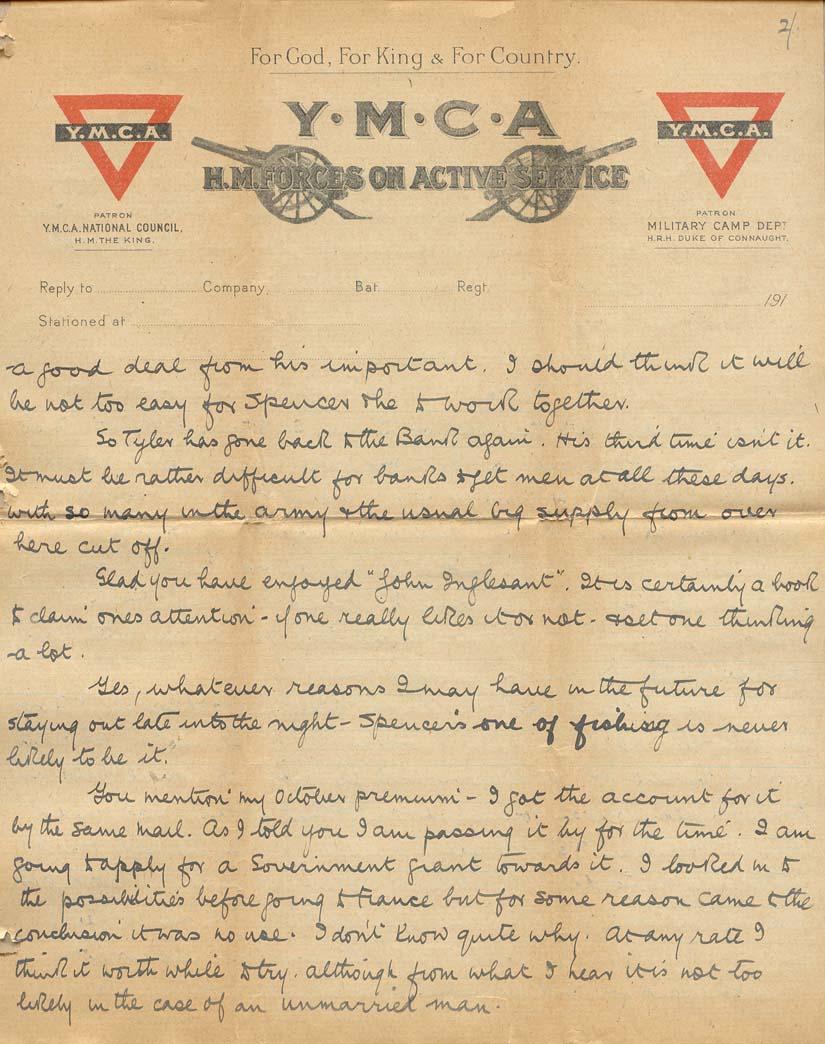 2/
For God, For King & For Country.
Y·M·C·A
H.M. FORCES ON ACTIVE SERVICE
Y.M.C.A.
PATRON
Y.M.C.A. NATIONAL COUNCIL.
H.M. THE KING.
Y.M.C.A.
PATRON
MILITARY CAMP DEPT
H.R.H. DUKE OF CONNAUGHT.
Reply to Company Bat. Regt.
191
Stationed at
a good deal from his important. I should think it will
be not too easy for Spencer & he to work together.
So Tyler has gone back to the Bank again. His third time isn't it.
It must be rather difficult for banks to get men at all these days.
with so many in the army & the usual big supply from over
here cut off.
Glad you have enjoyed "John Inglesant". It is certainly a book
to claim ones attention - if one really likes it or not - & set one thinking
a lot.
Yes, whatever reasons I may have in the future for
staying out late into the night - Spencer's one of fishing is never
likely to be it.
You mention my October premium - I got the account for it
by the same mail. As I told you I am passing it by for the time. I am
going to apply for a Government grant towards it. I looked in to
the possibilities before going to France but for some reason came to the
conclusion it was no use. I don't know quite why. At any rate I
think it worth while to try. although from what I hear it is not too
likely in the case of an unmarried man.